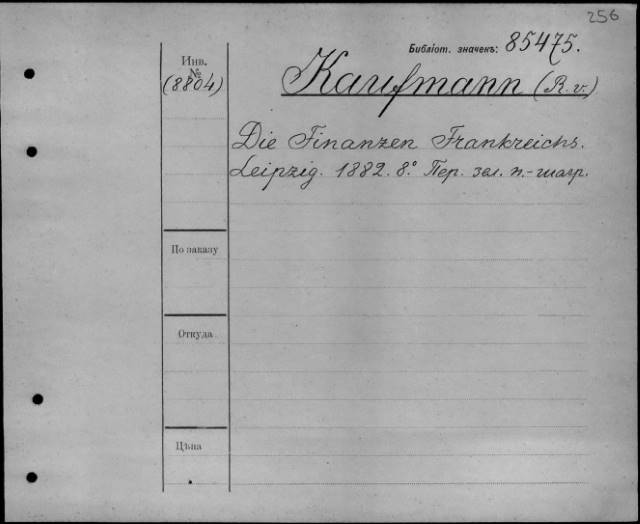 256
Библіот. значекъ: 85475.
Инв.
№
(8804)
Kaufmann (R. v.)
Die Finanzen Frankreichs.
Leipzig. 1882. 8.° Пер. зел. п.-шагр.
По заказу
Откуда
Цѣна